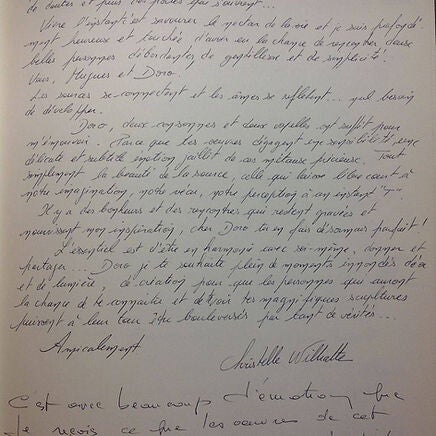 de doutes et puis des portes qui s'ouvrent...
Vivre l'instant c'est savourer le nectar de la vie et je suis profondé-
ment heureuse et touchée d'avoir eu la chance de rencontrer deux
belles personnes débordantes de gentillesse et de simplicité.
Vous, Hugues et Doro.
Les sources se connectent et les âmes se reflètent... nul besoin
de développer.
Doro, deux consonnes et deux voyelles ont suffit pour
m'émouvoir. Parce que tes oeuvres dégagent une sensibilité, une
délicate et subtile émotion jaillit de ces métaux précieux. Tout
simplement la beauté de la source, celle qui laisse libre court à
notre imagination, notre vécu, notre perception à un instant "T".
Il y a des bonheurs et des rencontres qui restent gravées et
nourrissent mon inspiration, cher Doro tu en fais désormais partie !
L'essentiel est d'être en harmonie avec soi-même, donner et
partager... Doro je te souhaite plein de moments innondés d'or
et de lumière, de création pour que les personnes qui auront
la chance de te connaître et de voir tes magnifiques sculptures
puissent à leur tour être bouleversés par tant de vérités...
Amicalement
Christelle
C'est avec beaucoup d'émotion que
je revois ce que les oeuvres de cet